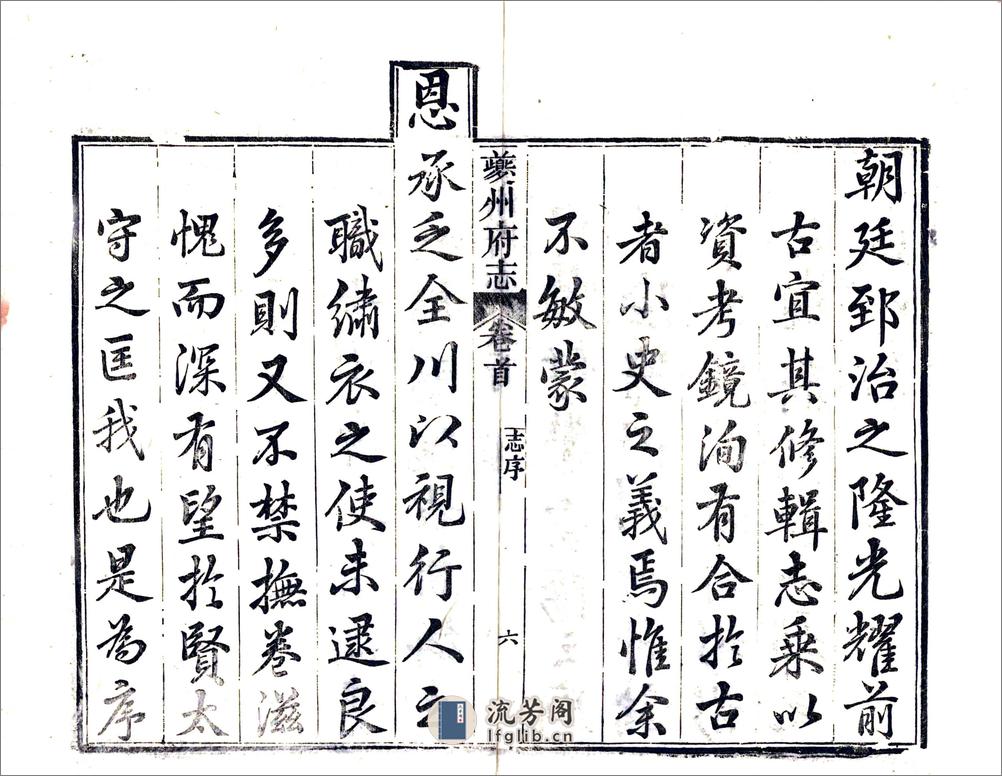 朝廷郅治之隆光耀前
古宜其修輯志乘以
資考鏡洵有合於古
者小史之義焉惟余
不敏蒙
夔州府志 卷首 志序 六
恩承乏全川以視行人之
職繡衣之使未逮良
多則又不禁撫卷滋
愧而深有望於賢太
守之匡我也是為序
流芳阁
lfglib.cn